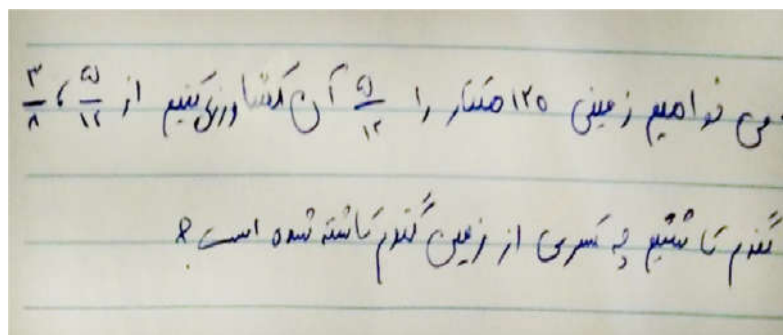 می خواهیم زمینی ۱۲۰ هکتار را ۵/۱۲ آن کشاورزی کنیم از ۵/۱۲ ، ۳/۸
گندم کاشتیم چه کسری از زمین گندم کاشته شده است؟